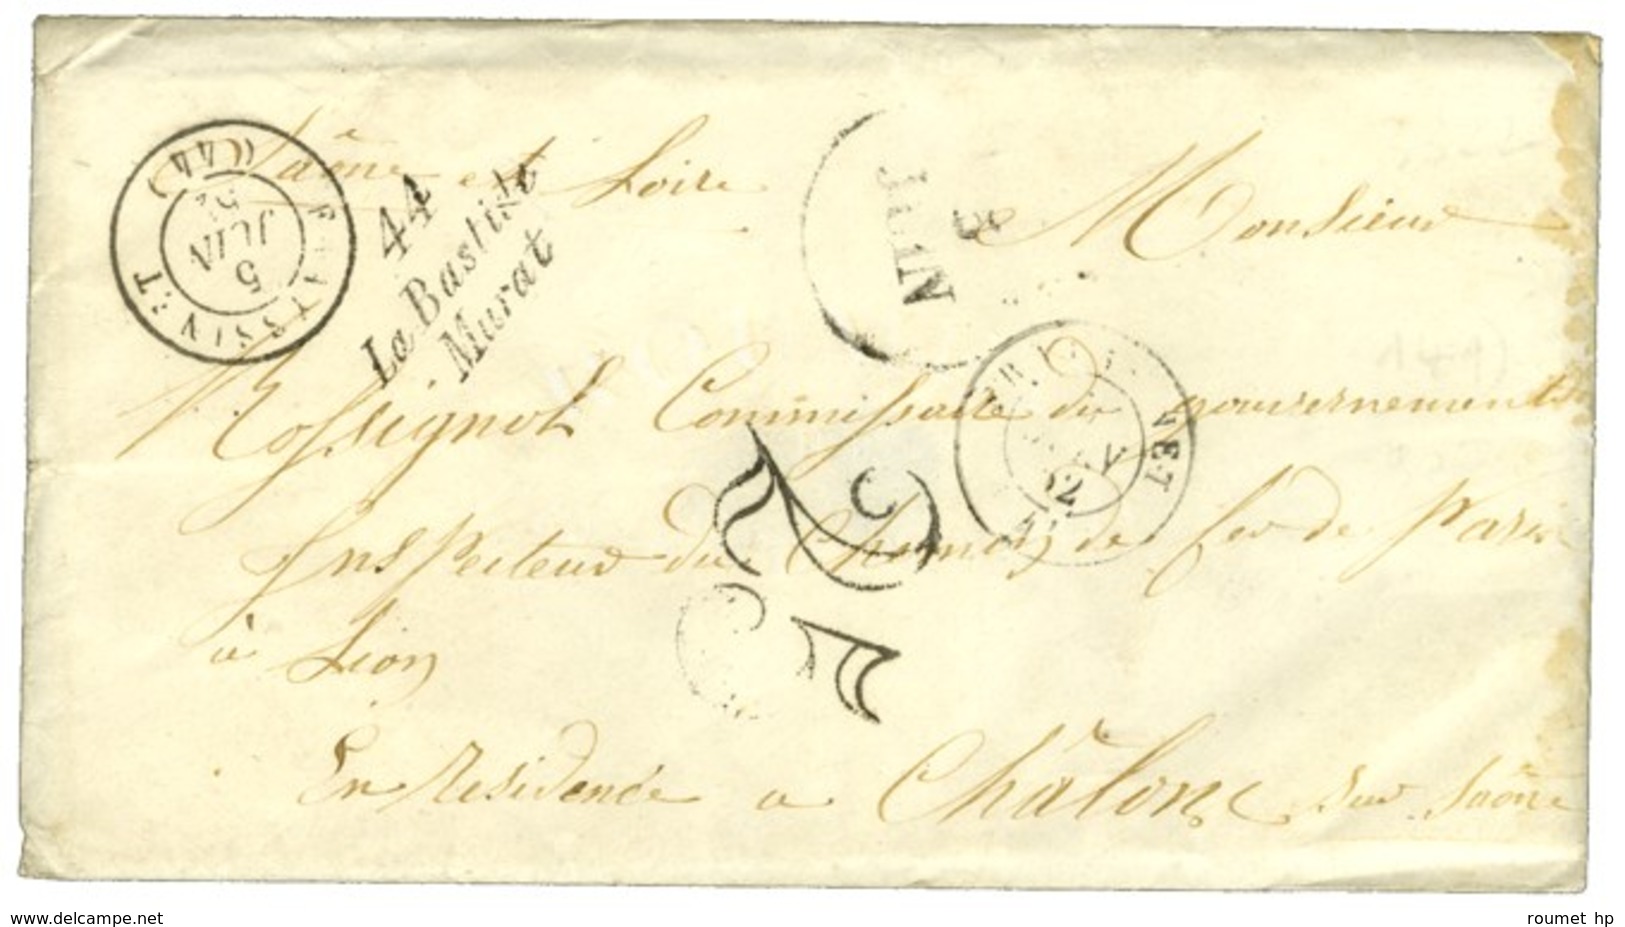 Saône et Loire
Monsieur
Rossignol Commissaire du gouvernement
Inspecteur du Chemin de fer de Paris
à Lion
En residence a Châlons sur Saône
44
La Bastide
Murat
FRAYSSINET (44)
5
JUIN
52
5
JUIN
www.delcampe.net
roumet hp